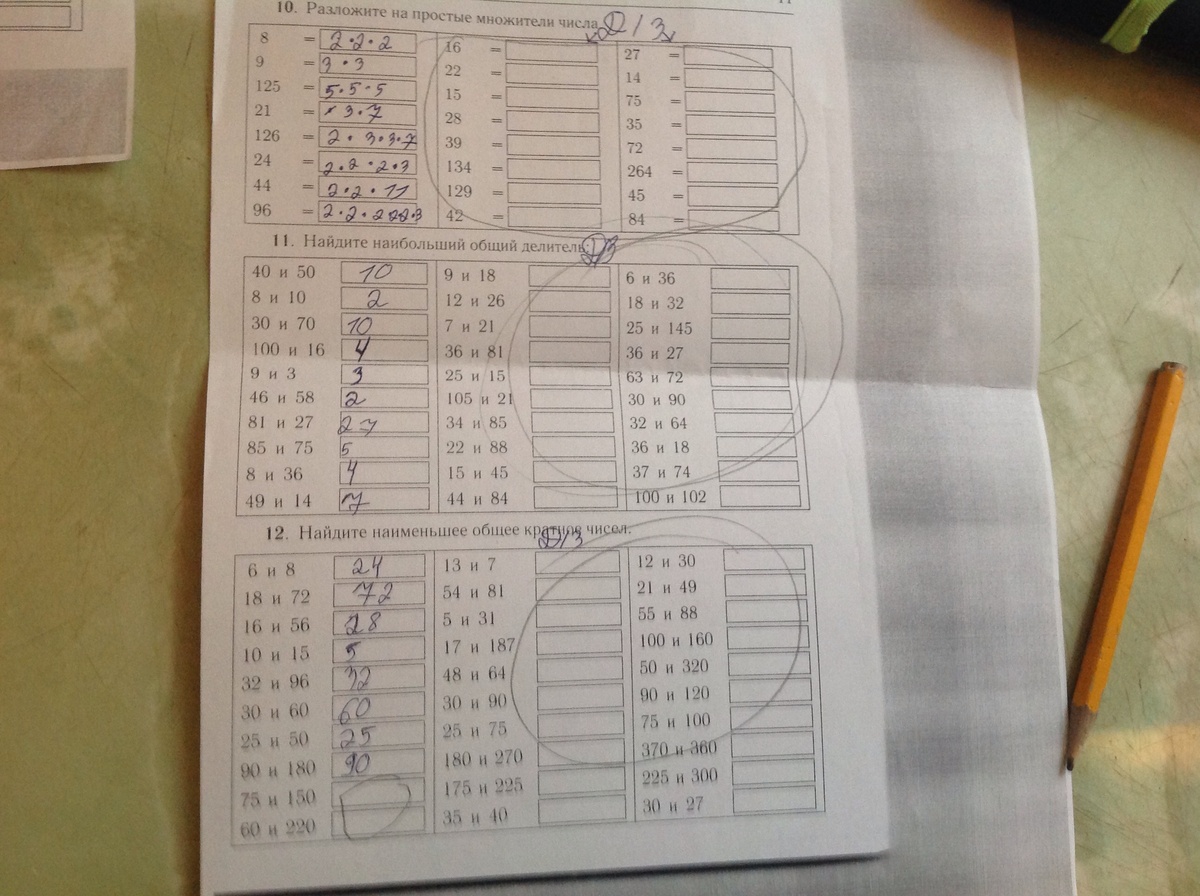 10. Разложите на простые множители числа
Д/З
8 = 2·2·2 16 = 27 =
9 = 3·3 22 = 14 =
125 = 5·5·5 15 = 75 =
21 = 3·7 28 = 35 =
126 = 2·3·3·7 39 = 72 =
24 = 2·2·2·3 134 = 264 =
44 = 2·2·11 129 = 45 =
96 = 2·2·2 42 = 84 =
11. Найдите наибольший общий делитель: Д/З
40 и 50 10 9 и 18 6 и 36
8 и 10 2 12 и 26 18 и 32
30 и 70 10 7 и 21 25 и 145
100 и 16 4 36 и 81 36 и 27
9 и 3 3 25 и 15 63 и 72
46 и 58 2 105 и 21 30 и 90
81 и 27 27 34 и 85 32 и 64
85 и 75 5 22 и 88 36 и 18
8 и 36 4 15 и 45 37 и 74
49 и 14 7 44 и 84 100 и 102
12. Найдите наименьшее общее кратное чисел.
Д/З
6 и 8 24 13 и 7 12 и 30
18 и 72 72 54 и 81 21 и 49
16 и 56 28 5 и 31 55 и 88
10 и 15 5 17 и 187 100 и 160
32 и 96 32 48 и 64 50 и 320
30 и 60 60 30 и 90 90 и 120
25 и 50 25 25 и 75 75 и 100
90 и 180 90 180 и 270 370 и 360
75 и 150 175 и 225 225 и 300
60 и 220 35 и 40 30 и 27